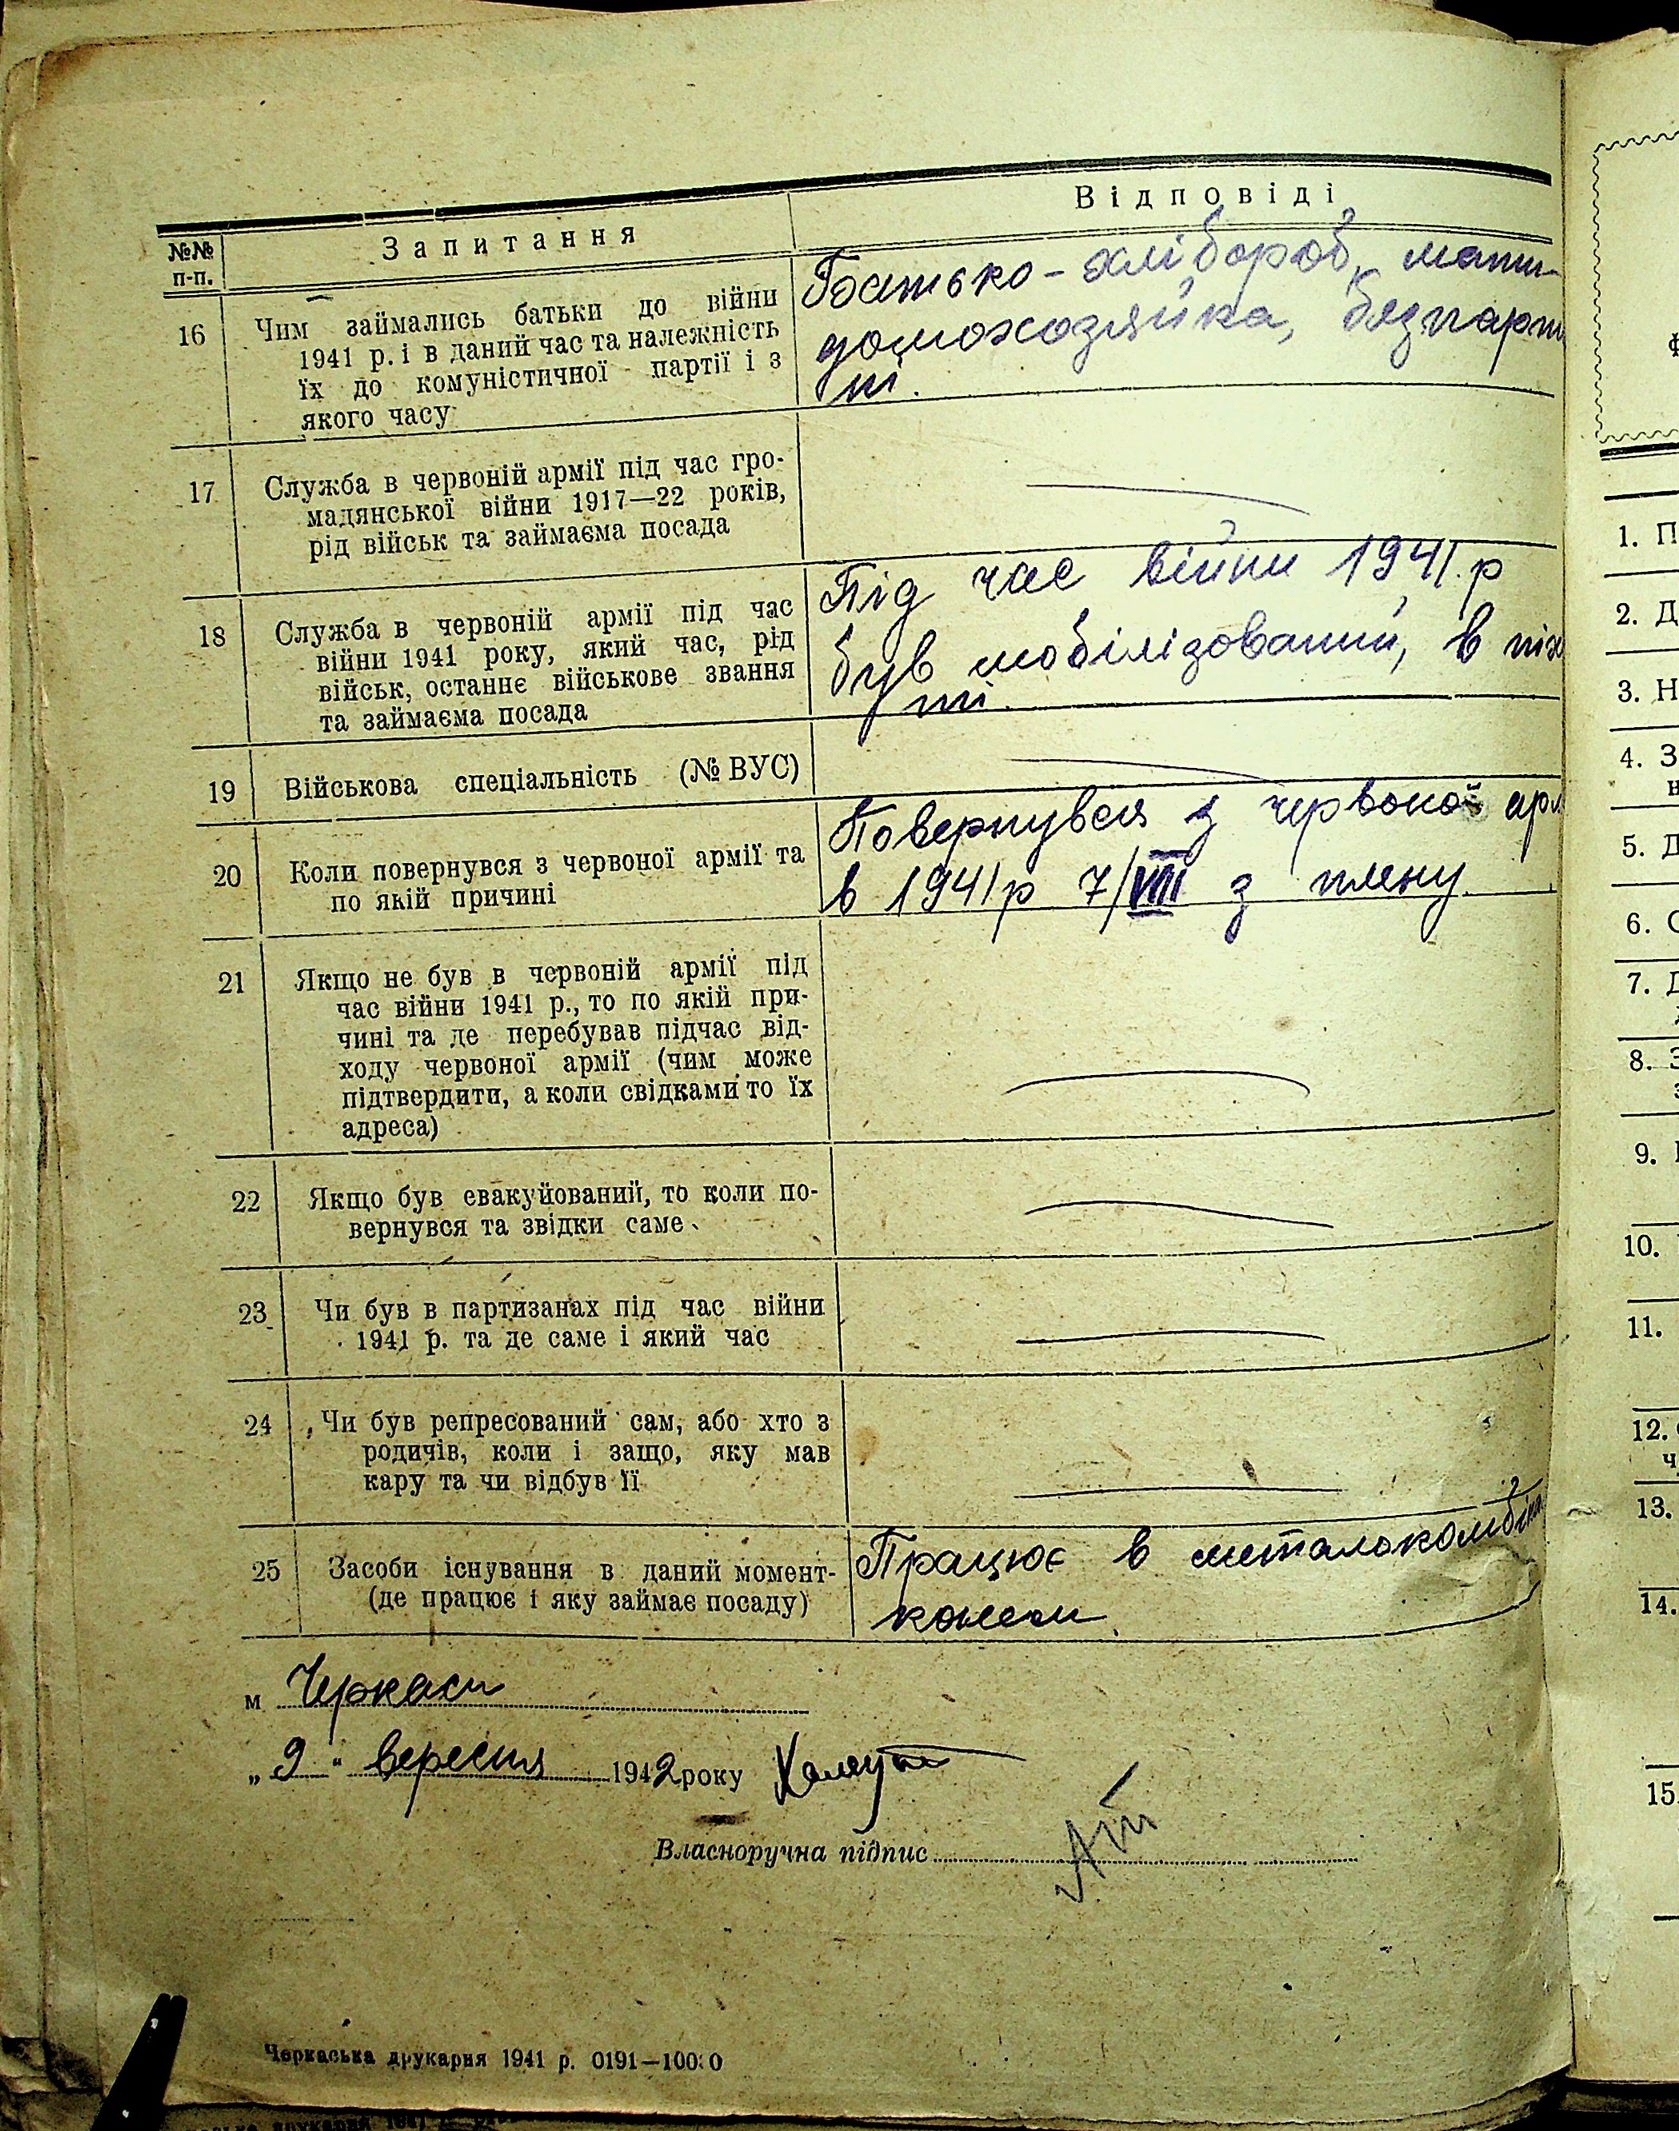 №№ п-п.
Запитання
Відповіді
16
Чим займались батьки до війни
1941 р. і в даний час та належність
їх до комуністичної партії і з
якого часу
Батько - хлібороб, мати-
домохозяйка, безпарт
ні.
17
Служба в червоній армії під час гро-
мадянської війни 1917—22 років,
рід військ та займаєма посада
18
Служба в червоній армії під час
війни 1941 року, який час, рід
військ, останнє військове звання
та займаєма посада
Під час війни 1941 р
був мобілізований, в піх
ті.
19
Військова спеціальність (№ ВУС)
20
Коли повернувся з червоної армії та
по якій причині
Повернувся з червоної арм
в 1941р 7/VIII з плену
21
Якщо не був в червоній армії під
час війни 1941 р., то по якій при-
чині та де перебував підчас від-
ходу червоної армії (чим може
підтвердити, а коли свідками то їх
адреса)
22
Якщо був евакуйований, то коли по-
вернувся та звідки саме
23
Чи був в партизанах під час війни
1941 р. та де саме і який час
24
Чи був репресований сам, або хто з
родичів, коли і защо, яку мав
кару та чи відбув її
25
Засоби існування в даний момент-
(де працює і яку займає посаду)
Працює в металокомбіна
м Черкаси
„9" вересня 1942 року
Власноручна підпис
Черкаська друкарня 1941 р. 0191—100:0
1. П
2. Д
3. Н
4. З
н
5. Д
6. С
7. Д
8. З
з
9.
10.
11.
12.
ч
13.
14.
15.